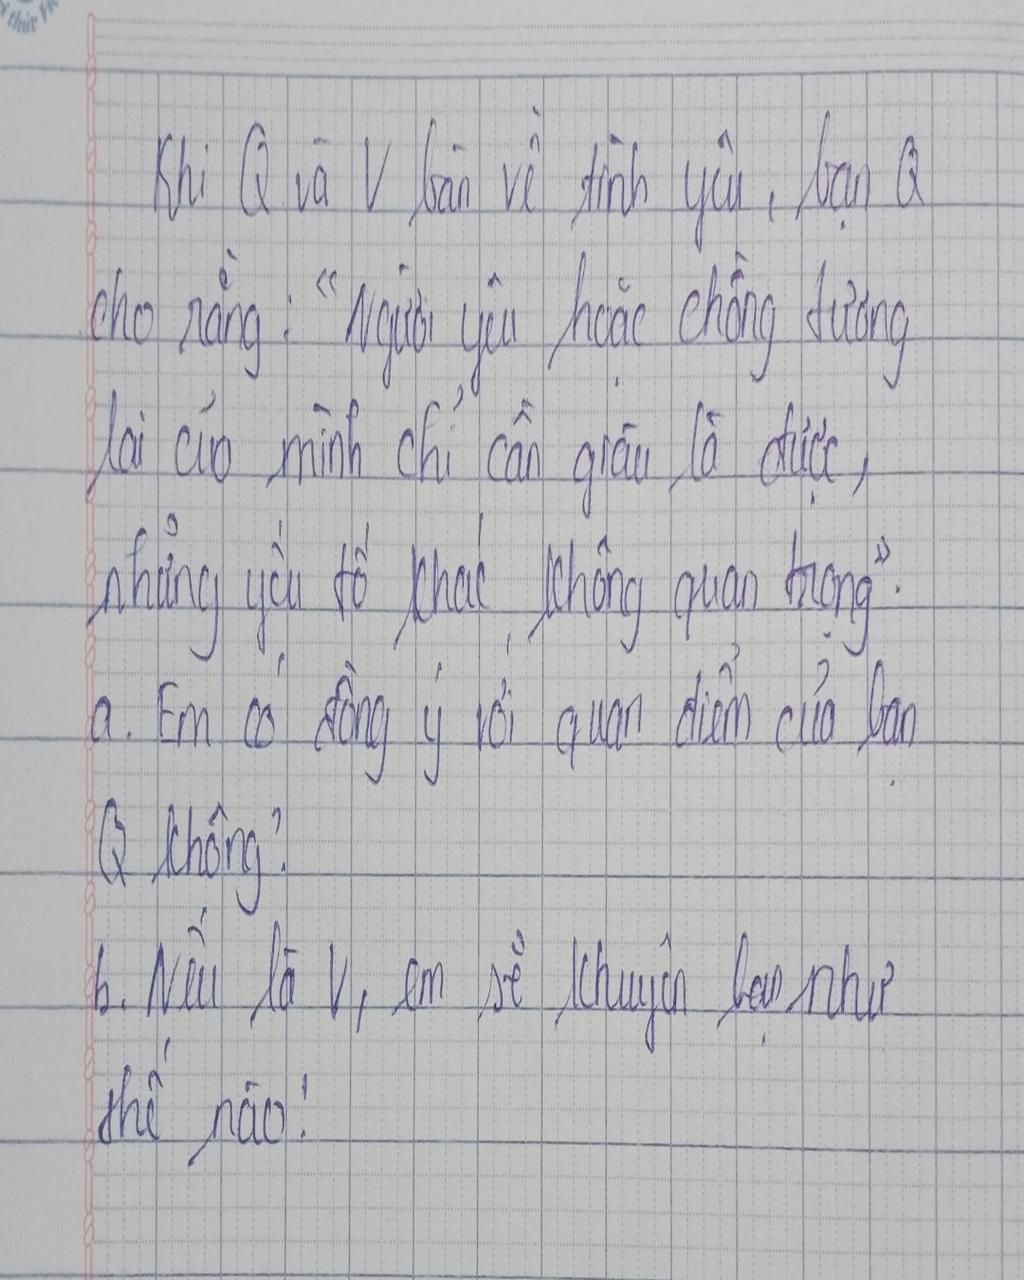 Khi Q và V bàn về tình yêu, bạn Q
cho rằng: "Người yêu hoặc chồng tương
lai của mình chỉ cần giàu là được,
những yếu tố khác không quan trọng".
a. Em có đồng ý với quan điểm của bạn
Q không?
b. Nếu là V, em sẽ khuyên bạn như
thế nào?